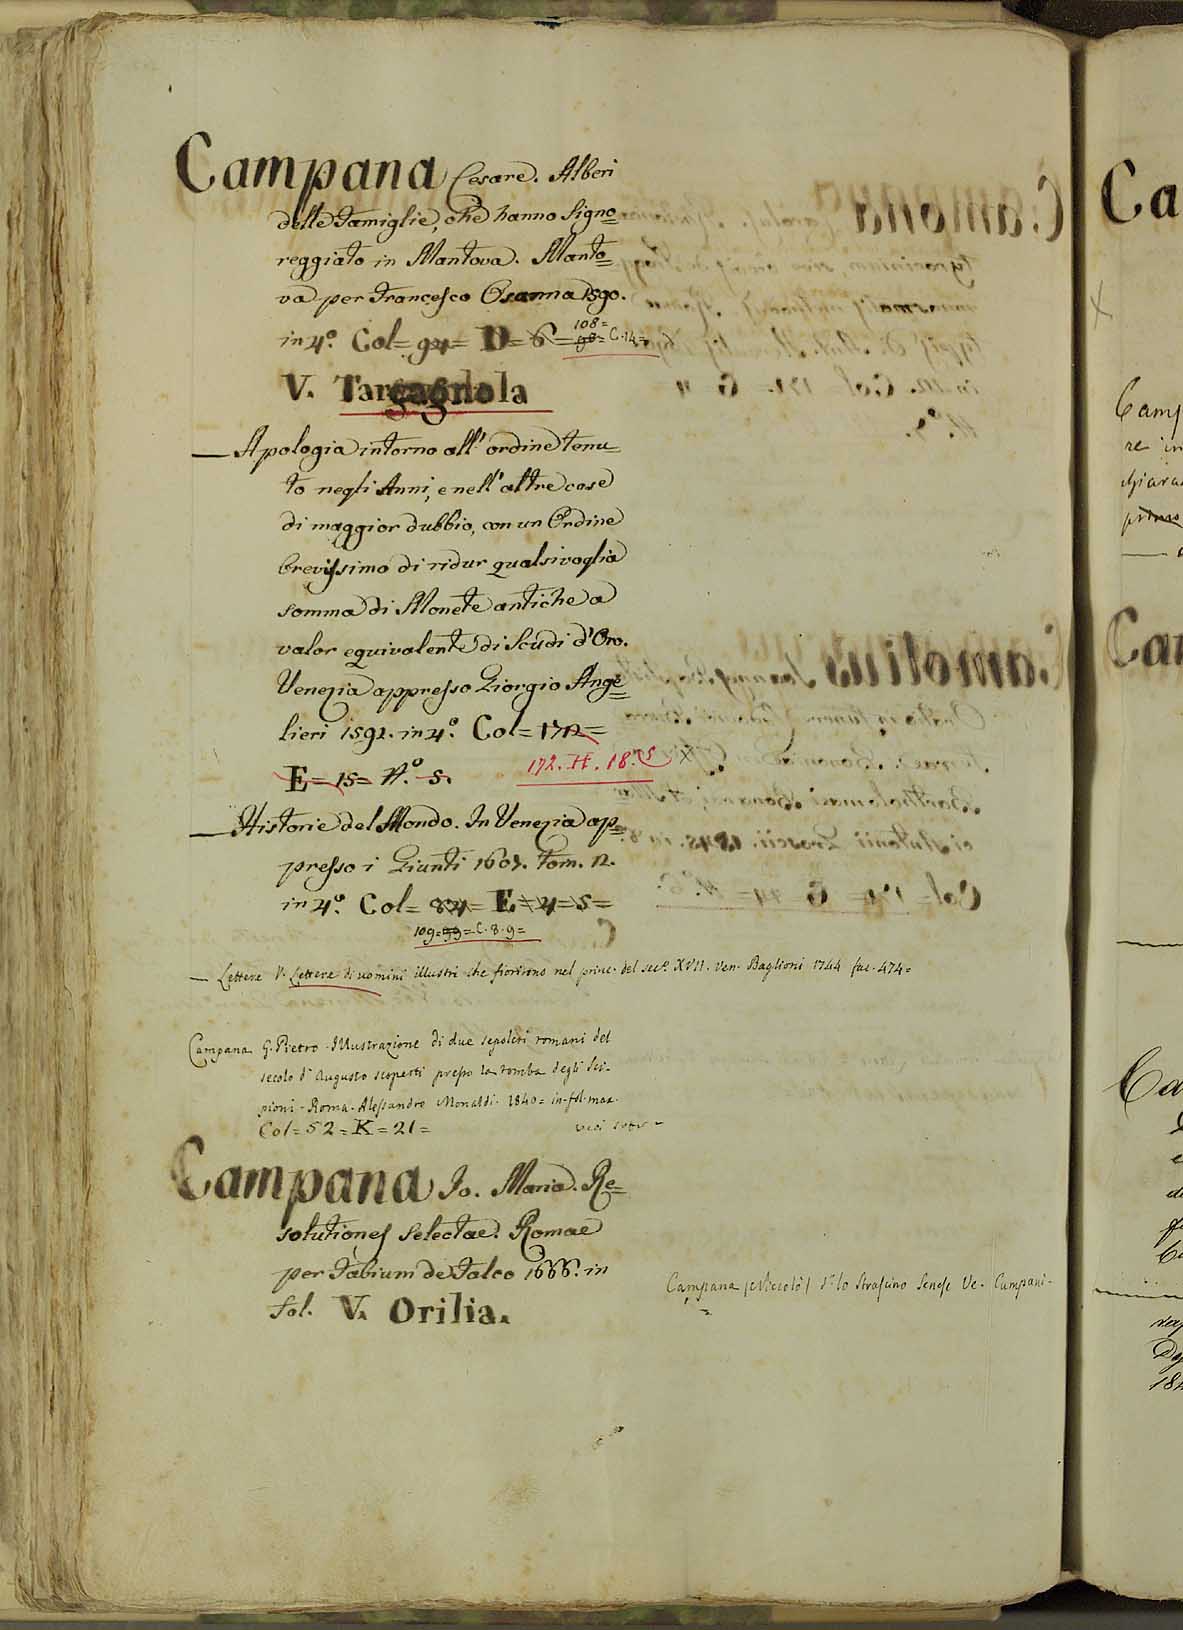 Campana Cesare. Alberi
delle Famiglie, che hanno Signo=
reggiato in Mantova. Manto=
va per Francesco Osanna 1590.
in 4.º Col= 94= D= 6=
108=
98= C.14=
V. Tarcagnola
— Apologia intorno all' ordine tenu=
to negli Anni, e nell' altre cose
di maggior dubbio, con un Ordine
brevissimo di ridur qualsivoglia
somma di Monete antiche a
valor equivalente di Scudi d'Oro.
Venezia appresso Giorgio Ange=
lieri 1592. in 4.º Col= 172=
E= 15= N.º 5.
172. H. 18.5
— Historie del Mondo. In Venezia ap=
presso i Giunti 1607. tom. 12.
in 4.º Col= 84= E= 4= 5=
109=99= C. 8. 9=
— Lettere V. Lettere di uomini illustri che fiorirono nel princ. del sec.º XVII. Ven. Baglioni 1744 fac. 474=
Campana G. Pietro. Illustrazione di due sepolcri romani del
secolo d' Augusto scoperti presso la tomba degli Sci-
pioni. Roma. Alessandro Monaldi. 1840= in-fol. max.
Col= 52= K= 21=
vedi sotto =
Campana Jo. Maria. Re=
solutiones selectae. Romae
per Fabium de Falco 1666. in
fol. V. Orilia.
Campana (Niccolò) d.º lo Strascino Senese Ve. Campani.
Ca
Camp
re in
chiara
primo
Ca
Ca